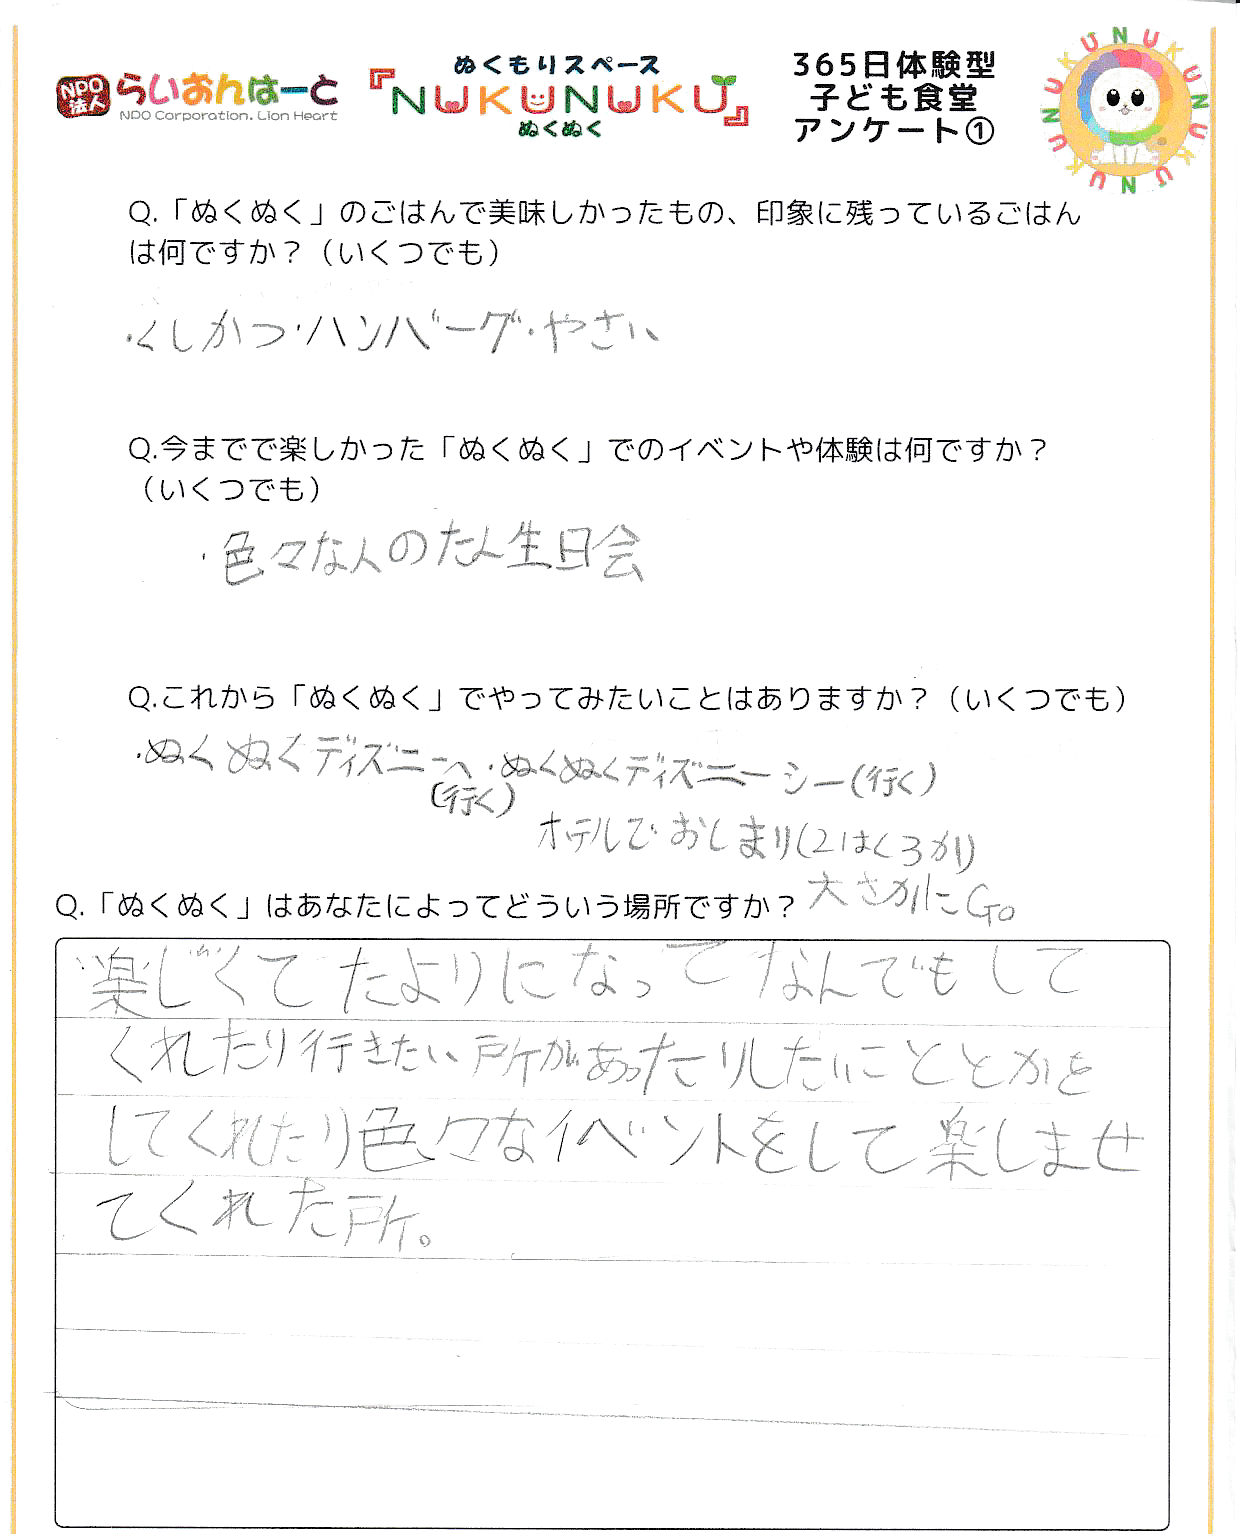 NPO法人 らいおんはーと
NPO Corporation. Lion Heart
ぬくもりスペース
『NUKUNUKU』
ぬくぬく
365日体験型
子ども食堂
アンケート①
NUKUNUKUNUKUNUKU
Q.「ぬくぬく」のごはんで美味しかったもの、印象に残っているごはん
は何ですか？（いくつでも）
・くしかつ・ハンバーグ・やさい
Q.今までで楽しかった「ぬくぬく」でのイベントや体験は何ですか？
（いくつでも）
・色々な人のたん生日会
Q.これから「ぬくぬく」でやってみたいことはありますか？（いくつでも）
・ぬくぬくディズニーへ・ぬくぬくディズニーシー(行く)
(行く)
ホテルでおしまり(2はく3か)
大さかにGo
Q.「ぬくぬく」はあなたによってどういう場所ですか？
楽しくてたよりになってなんでもして
くれたり行きたい所があったりしたいこととかを
してくれたり色々なイベントをして楽しませ
てくれた所。